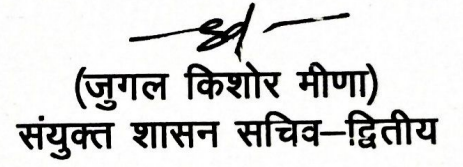 sd
(जुगल किशोर मीणा)
संयुक्त शासन सचिव–द्वितीय